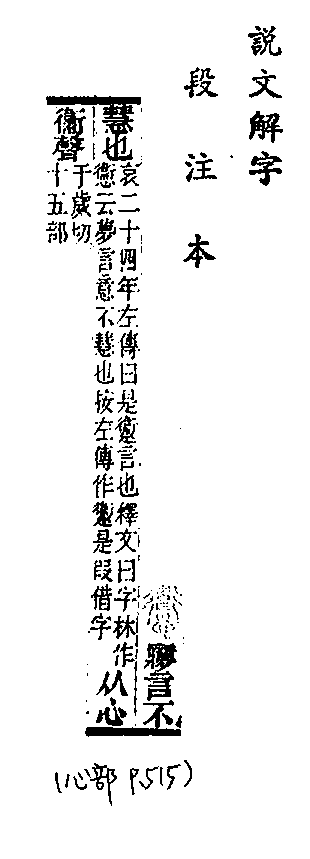 說文解字
段注本
言不
慧也
哀二十四年左傳曰是躛言也釋文曰字林作
云夢言意不慧也按左傳作躛是叚借字
从心
衞聲
于歲切
十五部
(心部 P.515)